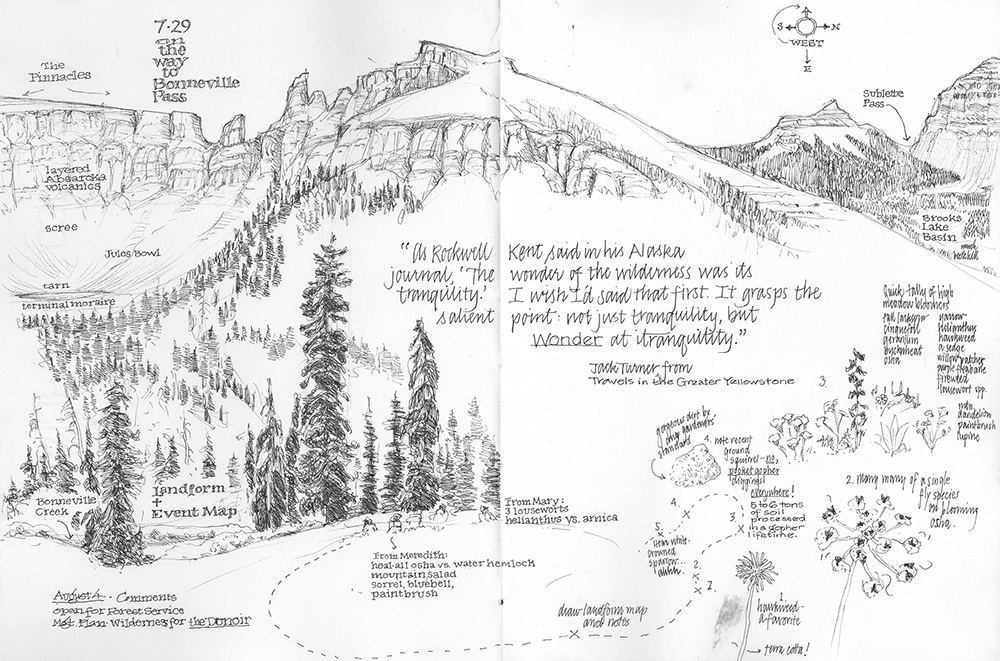 7·29
on
the
way
to
Bonneville
Pass
The
Pinnacles
S N
WEST
E
Sublette
Pass
layered
Absaroka
volcanics
scree
Jules Bowl
tarn
terminal moraine
Brooks
Lake
Basin
"As Rockwell Kent said in his Alaska
journal, 'The wonder of the wilderness was its
tranquility.' I wish I'd said that first. It grasps the
salient point: not just tranquility, but
wonder at tranquility."
Jack Turner from
Travels in the Greater Yellowstone
quick tally of high
meadow bloomers
tall larkspur
cinquefoil
geranium
buckwheat
osha
narrow
helianthus
hawkweed
a sedge
willow patches
purple fleabane
fireweed
lousewort spp.
into
dandelion
paintbrush
lupine
3.
gorgeous dirt by
any gardeners'
standard
4. note recent
ground
squirrel—no,
pocket gopher
diggings!
everywhere!
5 to 6 tons
of soil
processed
in a gopher
lifetime.
2. many many of a single
fly species
on blooming
osha.
Bonneville
Creek
landform
+
Event Map
From Mary:
3 louseworts
helianthus vs. arnica
From Meredith:
heal-all osha vs. water hemlock
mountain salad
sorrel, bluebell,
paintbrush
4.
x
3.
x
5.
x
hear white
crowned
sparrow...
2.
x
1.
x
1.
hawkweed—
a favorite
terra cotta!
draw landform map
and notes
x
August 4 · Comments
open for Forest Service
Mgt. Plan Wilderness for the DUNOIR